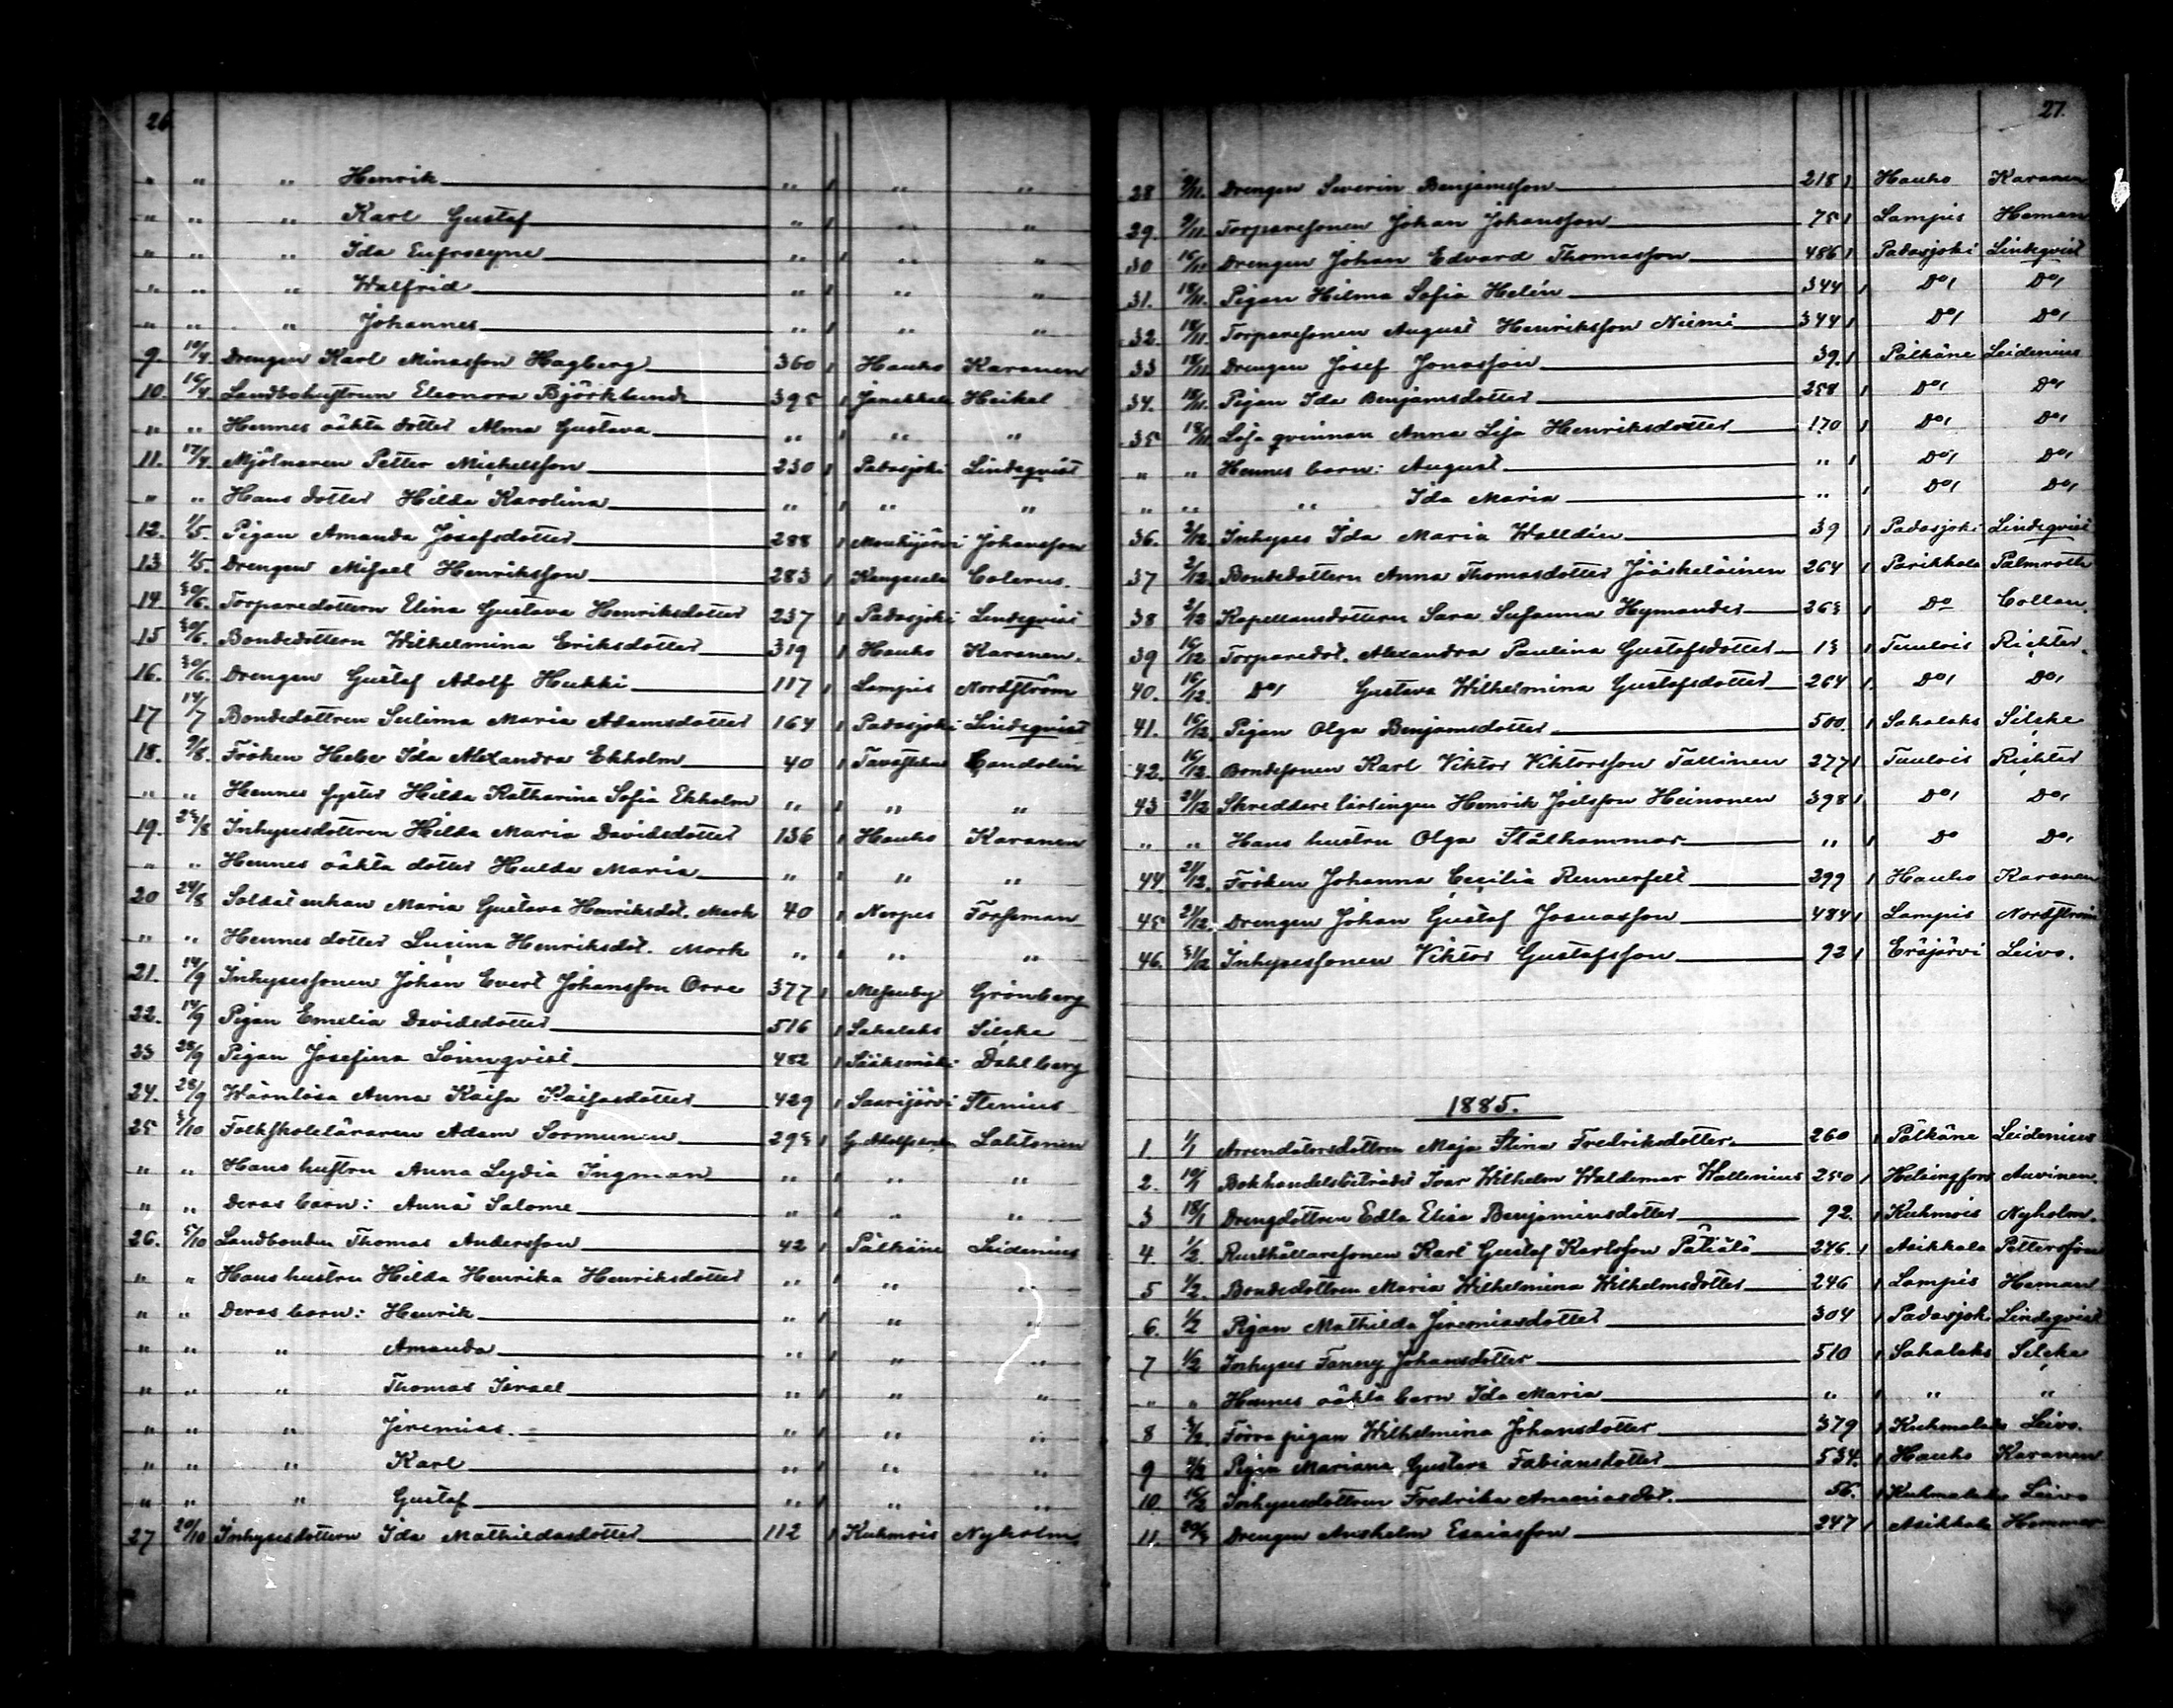 26.
„ „ „ Henrik „ 1 „ „
„ „ „ Karl Gustaf „ 1 „ „
„ „ „ Ida Eufrosyne „ 1 „ „
„ „ „ Walfrid „ 1 „ „
„ „ „ Johannes „ 1 „ „
9. 10/4 Drengen Karl Minasson Hagberg 360 1 Hauho Karanen
10. 16/4 Landbohustrun Eleonora Björklund 395 1 Janakkala Heikel
„ „ Hennes oäkta dotter Alma Gustava „ 1 „ „
11. 17/4 Mjölnaren Petter Michelsson 230 1 Padasjoki Lindeqvist
„ „ Hans dotter Hilda Karolina „ 1 „ „
12. 1/5 Pigan Amanda Josefsdotter 288 1 Mouhijärvi Johansson
13 1/5 Drengen Misael Henriksson 283 1 Kangasala Colerus.
14. 30/6 Torparedottern Elina Gustava Henriksdotter 237 1 Padasjoki Lindeqvist
15 30/6 Bondedottern Wilhelmina Eriksdotter 319 1 Hauho Karanen.
16. 30/6 Drengen Gustaf Adolf Hukki 117 1 Lampis Nordström
17 14/7 Bondedottren Selima Maria Adamsdotter 164 1 Padasjoki Lindeqvist
18. 9/8 Fröken Hebe Ida Alexandra Ekholm 40 1 Tavastehus Candolin
„ „ Hennes syster Hilda Katharina Sofia Ekholm „ 1 „ „
19. 24/8 Inhysesdottren Hilda Maria Davidsdotter 136 1 Hauho Karanen
„ „ Hennes oäkta dotter Hulda Maria „ 1 „ „
20 24/8 Soldatenkan Maria Gustava Henriksdot. Mark 40 1 Nerpes Forssman
„ „ Hennes dotter Lucina Henriksdot. Mark „ 1 „ „
21. 14/9 Inhysessonen Johan Evert Johansson Orre 377 1 Messuby Grönberg
22. 14/9 Pigan Emelia Davidsdotter 516 1 Sahalaks Silcke
23 28/9 Pigan Josefina Lönnqvist 482 1 Sääksmäki Dahlberg
24. 28/9 Wärnlösa Anna Kaisa Kaisasdotter 429 1 Saarijärvi Stenius
25 /10 Folkskoleläraren Adam Sormunen 293 1 G. Adolfs Lahtonen
„ „ Hans hustru Anna Lydia Ingman „ 1 „ „
„ „ Deras barn: Anna Salome „ 1 „ „
26. 5/10 Landbonden Thomas Andersson 42 1 Pälkäne Leidenius
„ „ Hans hustru Hilda Henrika Henriksdotter „ 1 „ „
„ „ Deras barn: Henrik „ 1 „ „
„ „ „ Amanda „ 1 „ „
„ „ „ Thomas Israel „ 1 „ „
„ „ „ Jeremias. „ 1 „ „
„ „ „ Karl „ 1 „ „
„ „ „ Gustaf „ 1 „ „
27 20/10 Inhysesdottern Ida Mathildasdotter 112 1 Kuhmois Nyholm
27.
28 9/11. Drengen Severin Benjamsson 218 1 Hauho Karanen
29. 9/11. Torparesonen Johan Johansson 75 1 Lampis Heman
30 15/11 Drengen Johan Edvard Thomasson 486 1 Padasjoki Lindeqvist
31. 18/11. Pigan Hilma Sofia Helén 344 1 Do, Do,
32. 18/11. Torparesonen August Henriksson Niemi 344 1 Do, Do,
33 18/11 Drengen Josef Jonasson 39. 1 Pälkäne Leidenius
34. 18/11. Pigan Ida Benjamsdotter 258 1 Do, Do,
35 18/11. Lösa qvinnan Anna Lisa Henriksdotter 170 1 Do, Do,
„ „ Hennes barn: August „ 1 Do, Do,
„ „ „ Ida Maria „ 1 Do, Do,
36. 2/12. Inhyses Ida Maria Walldén 39 1 Padasjoki Lindeqvist
37 2/12. Bondedottern Anna Thomasdotter Jääskeläinen 264 1 Parikkala Palmroth
38 2/12 Kapellansdottern Sara Susanna Hymander 263 1 Do Collan.
39 16/12 Torparedot. Alexandra Paulina Gustafsdotter 13 1 Tuulois Richter.
40. 16/12. Do, Gustava Wilhelmina Gustafsdotter 264 1 Do, Do,
41. 16/12. Pigan Olga Benjamsdotter 500. 1 Sahalaks Silcke
42. 16/12. Bondesonen Karl Viktor Viktorsson Tallinen 277 1 Tuulois Richter
43 21/12 Skreddere lärlingen Henrik Joelsson Heinonen 398 1 Do, Do,
„ „ Hans hustru Olga Stålhammar „ 1 Do Do,
44 21/12. Fröken Johanna Cecilia Rennerfelt 399 1 Hauho Karanen
45 21/12. Drengen Johan Gustaf Josuasson 484 1 Lampis Nordström
46. 31/12 Inhysessonen Viktor Gustafsson 92 1 Eräjärvi Leivo.
1885.
1. 1/1 Arrendatorsdottren Maja Stina Fredriksdotter 260 1 Pälkäne Leidenius
2. 10/1 Bokhandelsbiträdet Ivar Wilhelm Waldemar Wallenius 250 1 Helsingfors Auvinen.
3 18/1 Drengdottren Edla Elisa Benjaminsdotter 92. 1 Kuhmois Nyholm.
4 1/2. Rusthållaresonen Karl Gustaf Karlsson Pätiälä 246. 1 Asikkala Pettersson
5 1/2. Bondedottren Maria Wilhelmina Wilhelmsdotter 246 1 Lampis Heman
6. 1/2 Pigan Mathilda Jeremiasdotter 304 1 Padasjoki Lindeqvist
7 1/2 Inhyses Fanny Johansdotter 510 1 Sahalaks Silcke
„ „ Hennes oäkta barn Ida Maria „ 1 „ „
8 /2. Förra pigan Wilhelmina Johansdotter 379 1 Kuhmalaks Leivo.
9 /2 Pigan Mariana Gustava Fabiansdotter 534. 1 Hauho Karanen
10 15/2 Inhysesdottren Fredrika Ananiasdot. 56. 1 Kuhmalaks Leivo
11. Drengen Anshelm Esaiasson 247 1 Asikkala Hammar